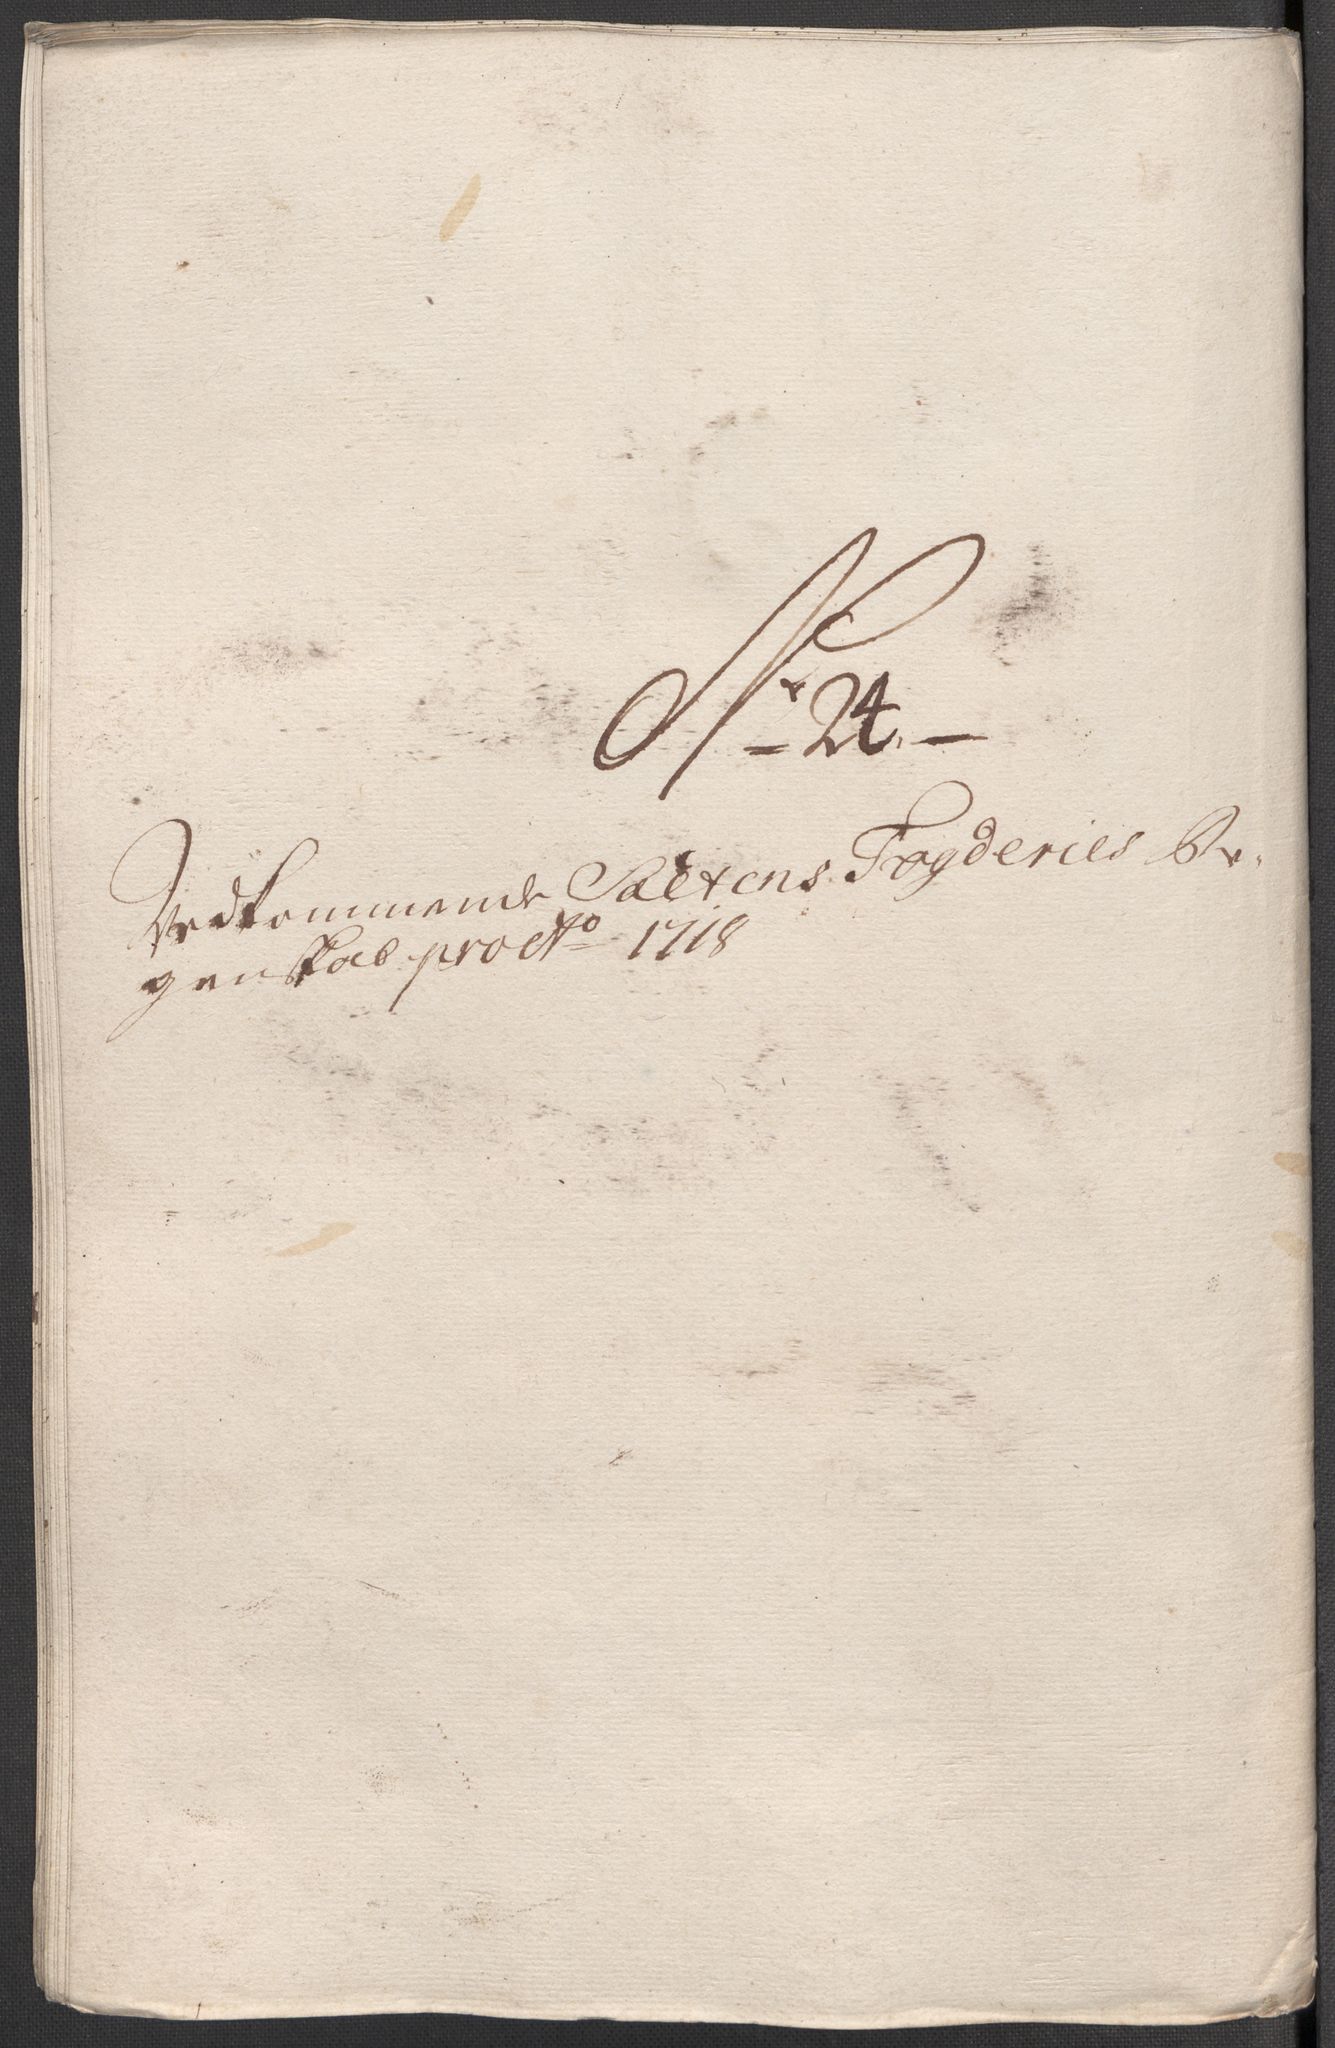 Nr 24.
Vedkommende Saltens Fogderies Re-
genskab pro Ao 1718